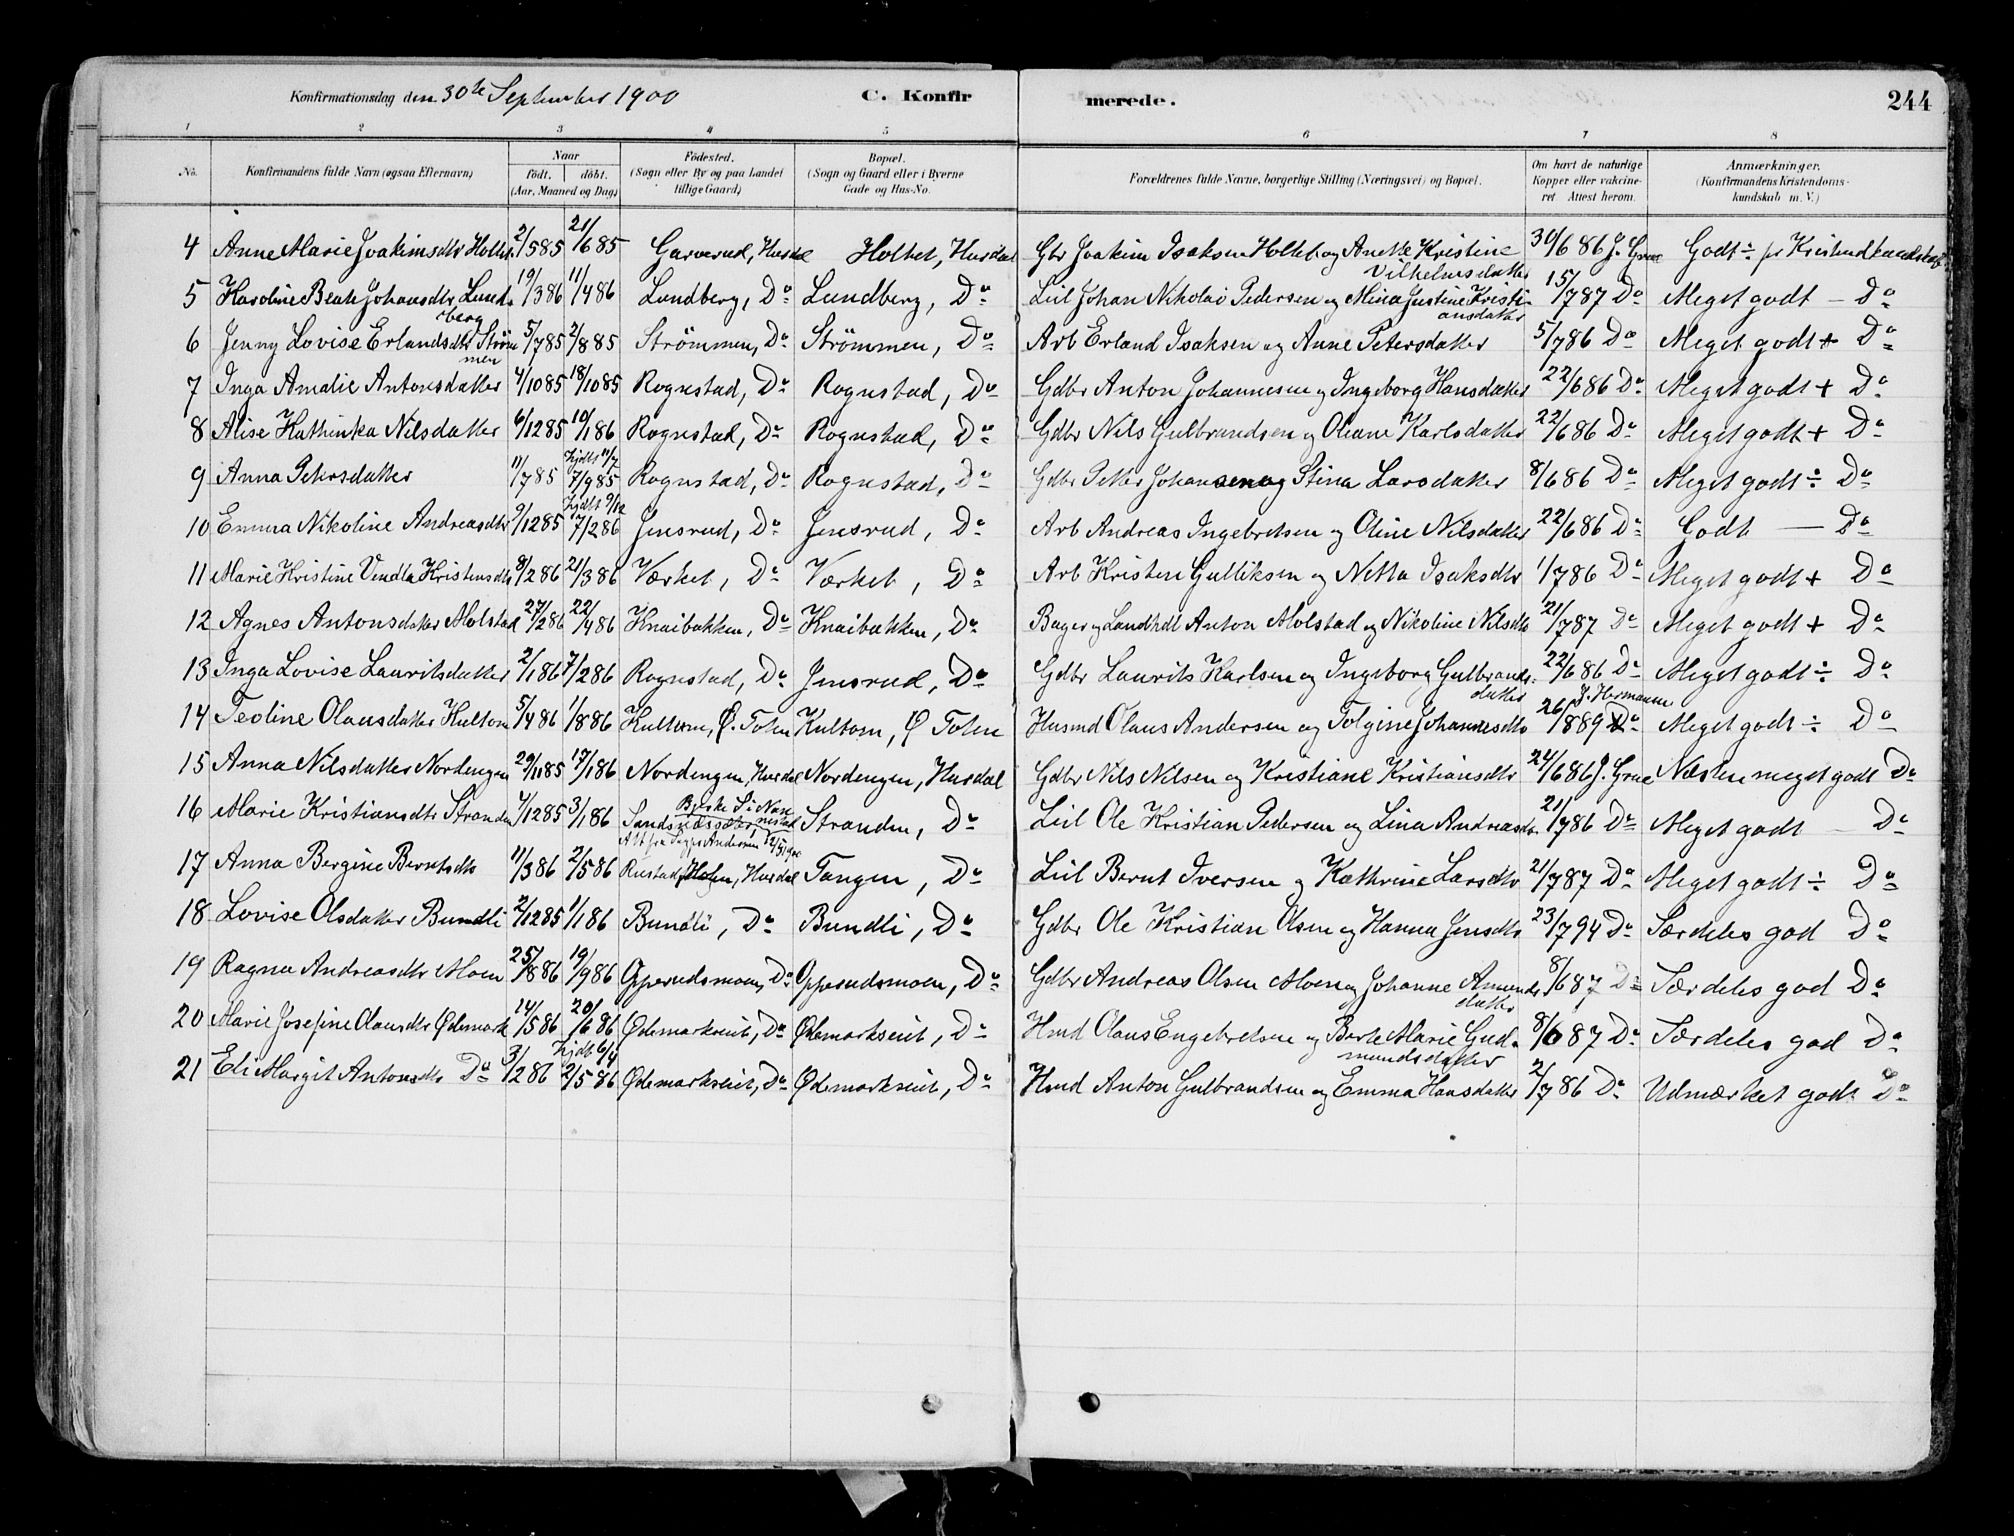 Konfirmationsdag den 30te September 1900 C. Konfirmerede. 244
1 2 3 4 5 6 7 8
No. Konfirmandens fulde Navn (ogsaa Efternavn) Naar født. døbt. (Aar, Maaned og Dag) Fødested. (Sogn eller By og paa Landet tillige Gaard) Bopæl. (Sogn og Gaard eller i Byerne Gade og Hus-No. Forældrenes fulde Navne, borgerlige Stilling (Næringsvei) og Bopæl. Om havt de naturlige Kopper eller vakcineret Attest herom. Anmærkninger. (Konfirmandens Kristendomskundskab m. V.)
4 Anne Marie Joakimsdtr Holtet 2/5 85 21/6 85 Garverud, Hurdal Holtet, Hurdal Gbr Joakim Isaksen Holtet og Anette Kristine Vilhelmsdatter 30/6 86 J. Grue Godt ÷ Kristendkundskab
5 Karoline Beate Johansdtr Lundberg 19/3 86 11/4 86 Lundberg, Do Lundberg, Do Leil Johan Nikolai Pedersen og Mina Justine Kristiansdatter 15/7 87 Do Meget godt — Do
6 Jenny Lovise Erlandsdtr Strömmen 5/7 85 2/8 85 Strömmen, Do Strömmen, Do Arb Erland Isaksen og Anne Petersdatter 5/7 86 Do Meget godt + Do
7 Inga Amalie Antonsdatter 4/10 85 18/10 85 Rognstad, Do Rognstad, Do Gdbr Anton Johannesen og Ingeborg Hansdatter 22/6 86 Do Meget godt + Do
8 Alise Kathinka Nilsdatter 6/12 85 10/1 86 Rognstad, Do Rognstad, Do Gdbr Nils Gulbrandsen og Oliane Karlsdatter 22/6 86 Do Meget godt + Do
9 Anna Petersdatter 11/7 85 hjdbt 11/7 7/9 85 Rognstad, Do Rognstad, Do Gdbr Petter Johansen og Stina Larsdatter 8/6 86 Do Meget godt ÷ Do
10 Emma Nikoline Andreasdtr 9/12 85 hjdbt 9/12 7/2 86 Jensrud, Do Jensrud, Do Arb Andreas Ingebretsen og Oline Nilsdatter 22/6 86 Do Godt — Do
11 Marie Kristine Vendla Kristensdtr 8/2 86 21/3 86 Værket, Do Værket, Do Arb Kristen Gulliksen og Netta Isaksdtr 1/7 86 Do Meget godt + Do
12 Agnes Antonsdatter Molstad 27/2 86 22/4 86 Knaibakken, Do Knaibakken, Do Bager og Landhdl Anton Molstad og Nikoline Nilsdtr 21/7 87 Do Meget godt + Do
13 Inga Lovise Lauritsdatter 2/1 86 7/2 86 Rognstad, Do Jensrud, Do Gdbr Laurits Karlsen og Ingeborg Gulbrandsdatter 22/6 86 Do Meget godt ÷ Do
14 Teoline Olausdatter Kultom 5/4 86 1/8 86 Kultom, Ø. Toten Kultom, Ø Toten Husmd Olaus Andersen og Tolgine Johannesdtr 26/8 89 J. Hermann Meget godt ÷ Do
15 Anna Nilsdatter Nordengen 29/11 85 17/1 86 Nordengen, Hurdal Nordengen, Hurdal Gdbr Nils Nilsen og Kristiane Kristiansdtr 24/6 86 J. Grue Næsten meget godt Do
16 Marie Kristiansdtr Stranden 4/12 85 3/1 86 Stranden, Do Leil Ole Kristian Pedersen og Lina Andreasdtr 21/7 86 Do Meget godt — Do
17 Anna Bergine Berntsdtr 11/3 86 2/5 86 Rustad, Hurdal Tangen, Do Leil Bernt Iversen og Kathrine Larsdtr 21/7 87 Do Meget godt ÷ Do
18 Lovise Olsdatter Bundli 2/12 85 1/1 86 Bundli, Do Bundli, Do Gdbr Ole Kristian Olsen og Hanna Jensdtr 23/7 94 Do Særdeles god Do
19 Ragna Andreasdtr Moen 25/8 86 19/9 86 Opperudsmoen, Do Opperudsmoen, Do Gdbr Andreas Olsen Moen og Johanne Amundsdatter 8/6 87 Do Særdeles god Do
20 Marie Josefine Olausdtr Ødemark 14/5 86 20/6 86 Ødemarkseiet, Do Ødemarkseiet, Do Hmd Olaus Engebretsen og Berte Marie Gudmundsdatter 8/6 87 Do Særdeles god Do
21 Eli Margit Antonsdtr Do 3/2 86 hjdbt 6/4 2/5 86 Ødemarkseiet, Do Ødemarkseiet, Do Hmd Anton Gulbrandsen og Emma Hansdatter 2/7 86 Do Udmærket godt Do